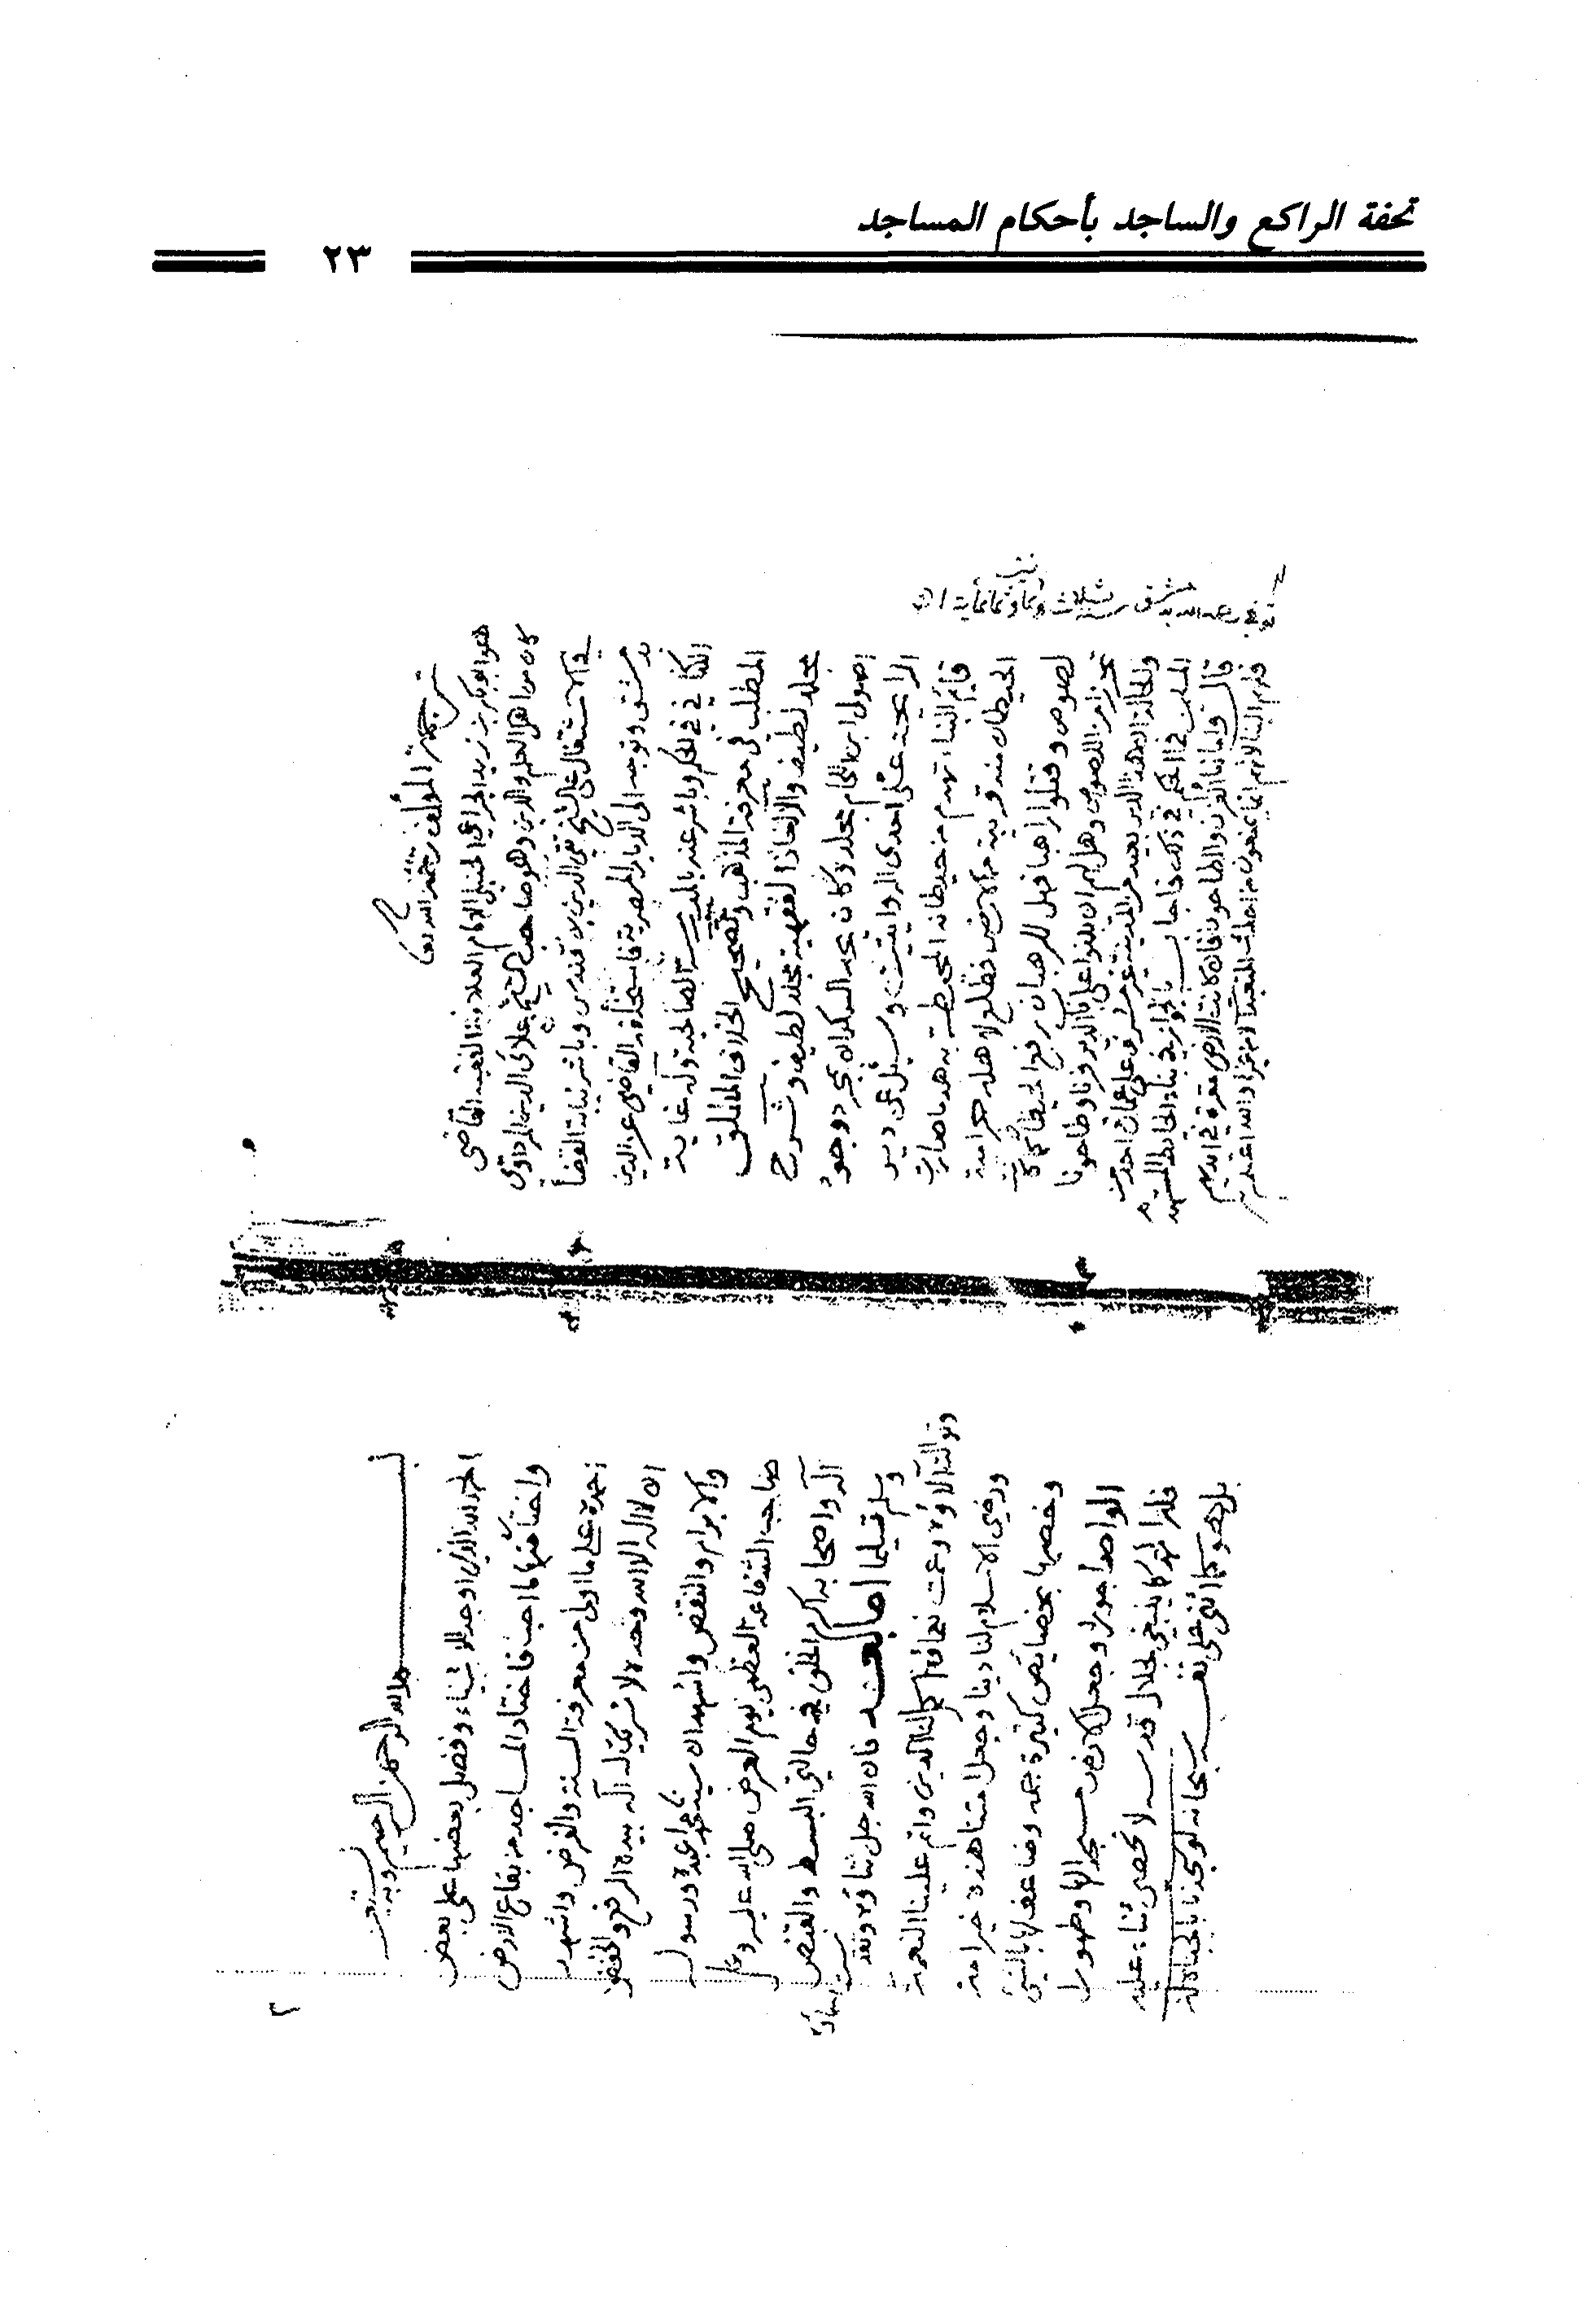 تحفة الراكع والساجد بأحكام المساجد
٢٣
ترجمة المؤلف رحمه الله تعا
هو ابو بكر بن زيد الجراعي الحنبلي الامام العلامة الفقيه القاضي
كان من اهل العلم والدين وهو صاحب الشيخ علائ الدين المرداوي
في الاشتغال على الشيخ تقي الدين بن قندس وباشر نيابة القضا
بدمشق وتوجه الى الديار المصرية فاستخلفه القاضي عز الدين
الكناني في الحكم وباشر عنه بالمدرسة الصالحية وله غاية
المطلب في معرفة المذهب وتصحيح الخلاف المطلق
مجلد لطيف والالغاز الفقهية مجلد لطيف وشرح
اصول ابن اللحام مجلد وكان يحد السكران بمجرد وجود
الرايحة على احدى الروايتين وسئل عن دير
قايم البناء تهدم من حيطانه المحيطة به هدما صارت
الحيطان منه قريبة من الارض فطلع لاهله حرامية
لصوص وقتلوا راهبا فهل للرهبان رفع الحيطان كما كانت
تحرزا من اللصوص وهل لهم ان يبنوا على باب الدير فرنا وطاحونا
والحالة ان هذا الدير بعيد من المدينة غير مشرف على عمارة احد من
المسلمين فما الحكم في ذلك فاجاب بالجواز في بناء الحائط المنهدم
قال واما بنا الفرن والطاحون فان كانت الارض مقرة في ايديهم
فلهم البنا لانهم انما يمنعون من احداث المتعبدات لا من غيرها والله اعلم
توفي بصالحية دمشق سنة ثلاث وثمانين وثمانماية
٢
بسم الله الرحمن الرحيم وبه نستعين
الحمد لله الذي اوجد الاشياء وفضل بعضها على بعض
واختا منها ما احب فاختار المساجد من بقاع الارض
احمده على ما اولى من معرفة السنة والفرض واشهد
ان لا اله الا الله وحده لا شريك له اله بيده الرفع والخفض
والابرام والنقض واشهد ان سيدنا محمدا عبده ورسوله
صاحب الشفاعة العظمى يوم العرض صلى الله عليه وعلى
اله واصحابه اكرم الخلق في حالتي البسط والقبض
وسلم تسليما اما بعد فان الله جل ثناؤه وتقدست اسماؤه
وتوالت آلاؤه وعمت نعماؤه اكمل لنا الدين واتم علينا النعمة
ورضي الاسلام لنا دينا وجعل امتنا هذه خير امة
وخصها بخصايص كثيرة جمة وضاعف لها بالشيء
الواحد اجورا وجعل الارض مسجدا لها وطهورا
فله الحمد كما ينبغي لجلال قدسه لا نحصي ثناء عليه
بل هو كما اثنى على نفسه سبحانه لو سجدنا بالجباه له